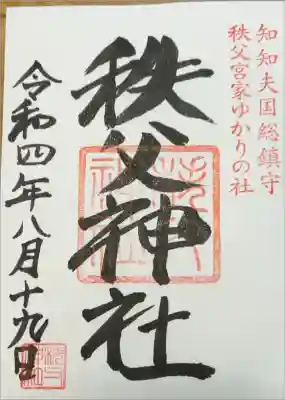 知知夫国総鎮守
秩父宮家ゆかりの社
秩父神社
令和四年八月十九日